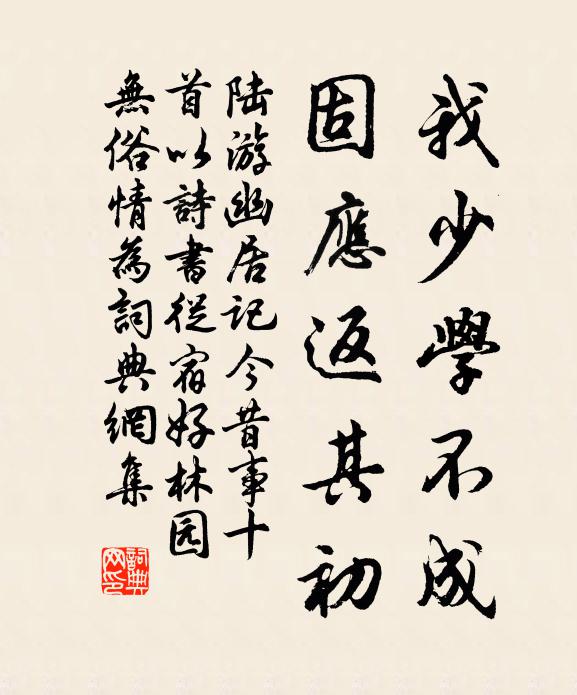 我少學不成
固應返其初
陆游幽居记今昔事十
首以詩書從宿好林园
無俗情為詞典網集
詞典
网印